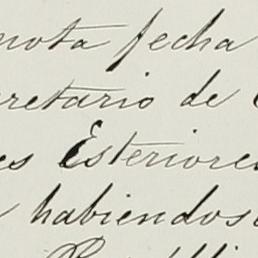 nota fecha
cretario de
es Esteriores
habiendose